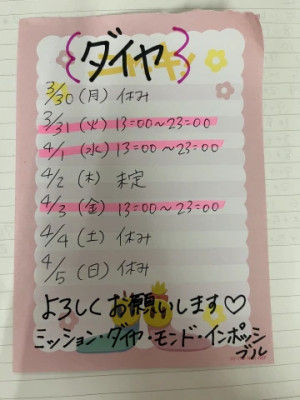 ダイヤ
3/30(月)休み
3/31(火)13:00~23:00
4/1(水)13:00~23:00
4/2(木)未定
4/3(金)13:00~23:00
4/4(土)休み
4/5(日)休み
よろしくお願いします♡
ミッション・ダイヤ・モンド・インポッシ
ブル